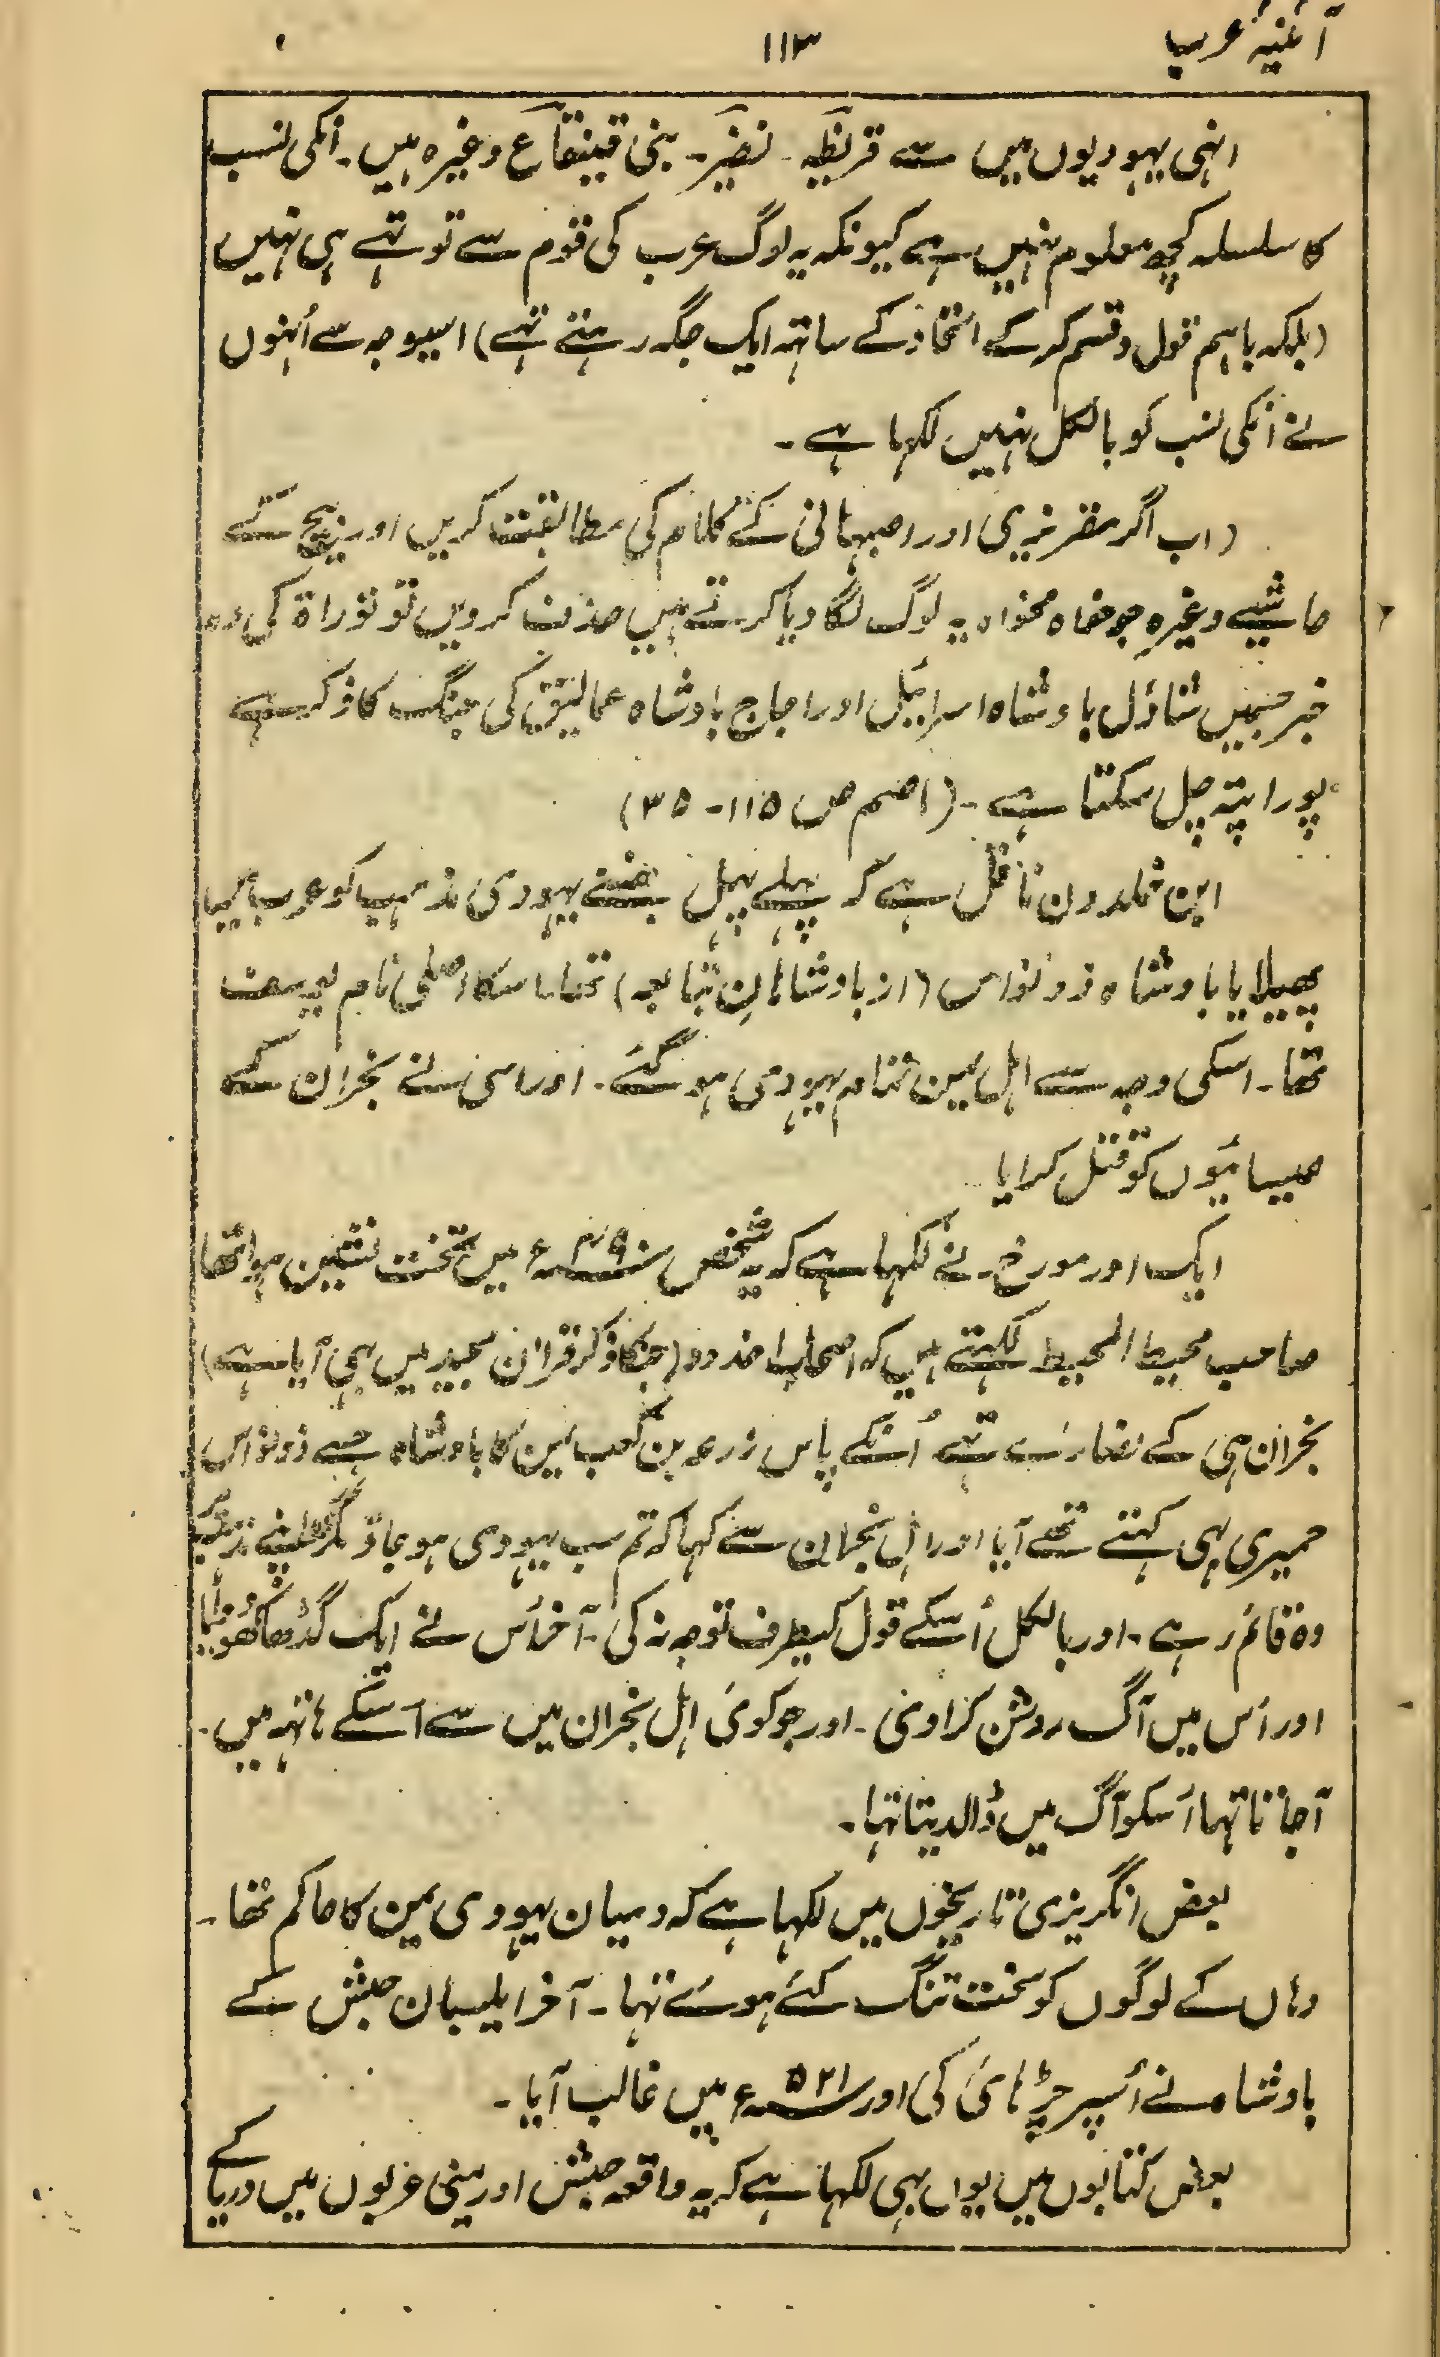 آئنیۂ عرب
۱۱۳
انہی یہودیوں میں سے قریظہ ۔ نضیر ۔ بنی قینقاع وغیرہ ہیں ۔ انکی نسب
کا سلسلہ کچھ معلوم نہیں ہے کیونکہ یہ لوگ عرب کی قوم سے تو تہے ہی نہیں
(بلکہ باہم قول و قسم کرکے اتحاد کے ساتہہ ایک جگہ رہتے تہے) اسیوجہ سے اُنہوں
نے انکی نسب کو بالکل نہیں لکہا ہے ۔
(اب اگر مقریزی اور اصبہانی کے کلام کی مطابقت کریں اور بیچ کے
حاشیے وغیرہ جو خواہ مخواہ یہ لوگ لگا دیا کرتے ہیں حذف کردیں تو توراۃ کی وہ
خبر جسمیں شاؤل بادشاہ اسرائیل اور اجاج بادشاہ عمالیق کی جنگ کا ذکر ہے
پورا پتہ چل سکتا ہے ۔ (اضم ص ۱۱۵ - ۳۵)
ابن خلدون ناقل ہے کہ پہلے پہل جسنے یہودی مذہب کو عرب میں
پھیلایا بادشاہ ذو نواس (از بادشاہان تبابعہ) تھا اسکا اصلی نام یوسف
تھا ۔ اسکی وجہ سے اہل یمن تمام یہودی ہو گئے ۔ اور اسی نے نجران کے
عیسائیوں کو قتل کرایا
ایک اور مورخ نے لکہا ہے کہ یہ شخص سنہ ء میں تخت نشین ہوا تھا
صاحب محیط المحیط لکہتے ہیں کہ اصحاب اخدود (جنکا ذکر قران مجید میں بہی آیا ہے)
نجران ہی کے نصارے تہے اُنکے پاس زرعہ بن کعب یمن کا بادشاہ جسے ذونواس
حمیری بہی کہتے تھے آیا اور اہل نجران سے کہا کہ تم سب یہودی ہو جاؤ مگر اپنے مذہب پر
وہ قائم رہے ۔ اور بالکل اُسکے قول کیطرف توجہ نہ کی ۔ آخر اُس نے ایک گڈھا کھودوایا
اور اُس میں آگ روشن کرا دی ۔ اور جو کوئی اہل نجران میں سے اُسکے ہاتہہ میں ۔
آجاتا تہا اُسکو آگ میں ڈالدیتا تہا ۔
بعض انگریزی تاریخوں میں لکہا ہے کہ دمیان یہودی یمن کا حاکم تھا ۔
وہاں کے لوگوں کو سخت تنگ کئے ہوئے تہا ۔ آخر ایلسبان حبش کے
بادشاہ نے اُسپر چڑہائی کی اور سنہ ۵۲۱ء میں غالب آیا ۔
بعض کتابوں میں یوں بہی لکہا ہے کہ یہ واقعہ حبش اور یمنی عربوں میں دریا کے